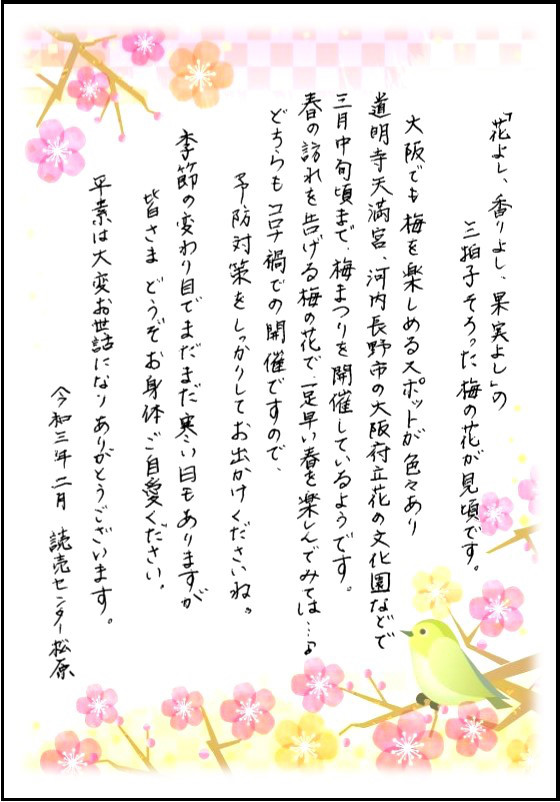 「花よし、香りよし、果実よし」の
三拍子そろった梅の花が見頃です。
大阪でも梅を楽しめるスポットが色々あり
道明寺天満宮、河内長野市の大阪府立花の文化園などで
三月中旬頃まで、梅まつりを開催しているようです。
春の訪れを告げる梅の花で、一足早い春を楽しんでみては…♪
どちらもコロナ禍での開催ですので、
予防対策をしっかりしてお出かけくださいね。
季節の変わり目でまだまだ寒い日もありますが
皆さまどうぞお身体ご自愛ください。
平素は大変お世話になりありがとうございます。
令和三年二月 読売センター松原